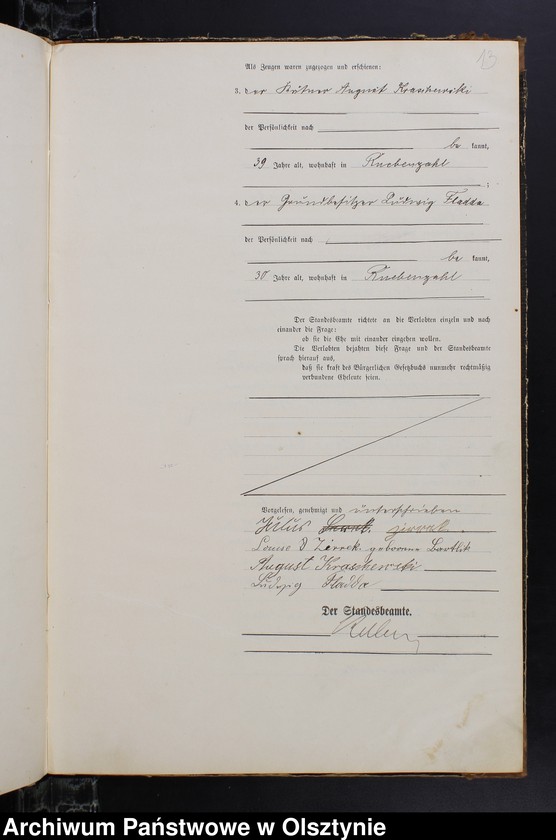 13
Als Zeugen waren zugezogen und erschienen:
3. der Kätner August Kraschewski
der Persönlichkeit nach
be kannt,
39 Jahre alt, wohnhaft in Ruebenzahl
;
4. der Grundbesitzer Ludwig Fladda
der Persönlichkeit nach
be kannt,
30 Jahre alt, wohnhaft in Ruebenzahl
Der Standesbeamte richtete an die Verlobten einzeln und nach
einander die Frage:
ob sie die Ehe mit einander eingehen wollen.
Die Verlobten bejahten diese Frage und der Standesbeamte
sprach hierauf aus,
daß sie kraft des Bürgerlichen Gesetzbuchs nunmehr rechtmäßig
verbundene Eheleute seien.
Vorgelesen, genehmigt und unterschrieben
Julus
geborene Bartlik
August Kraschewski
Ludwig Fladda
Der Standesbeamte.
Archiwum Państwowe w Olsztynie